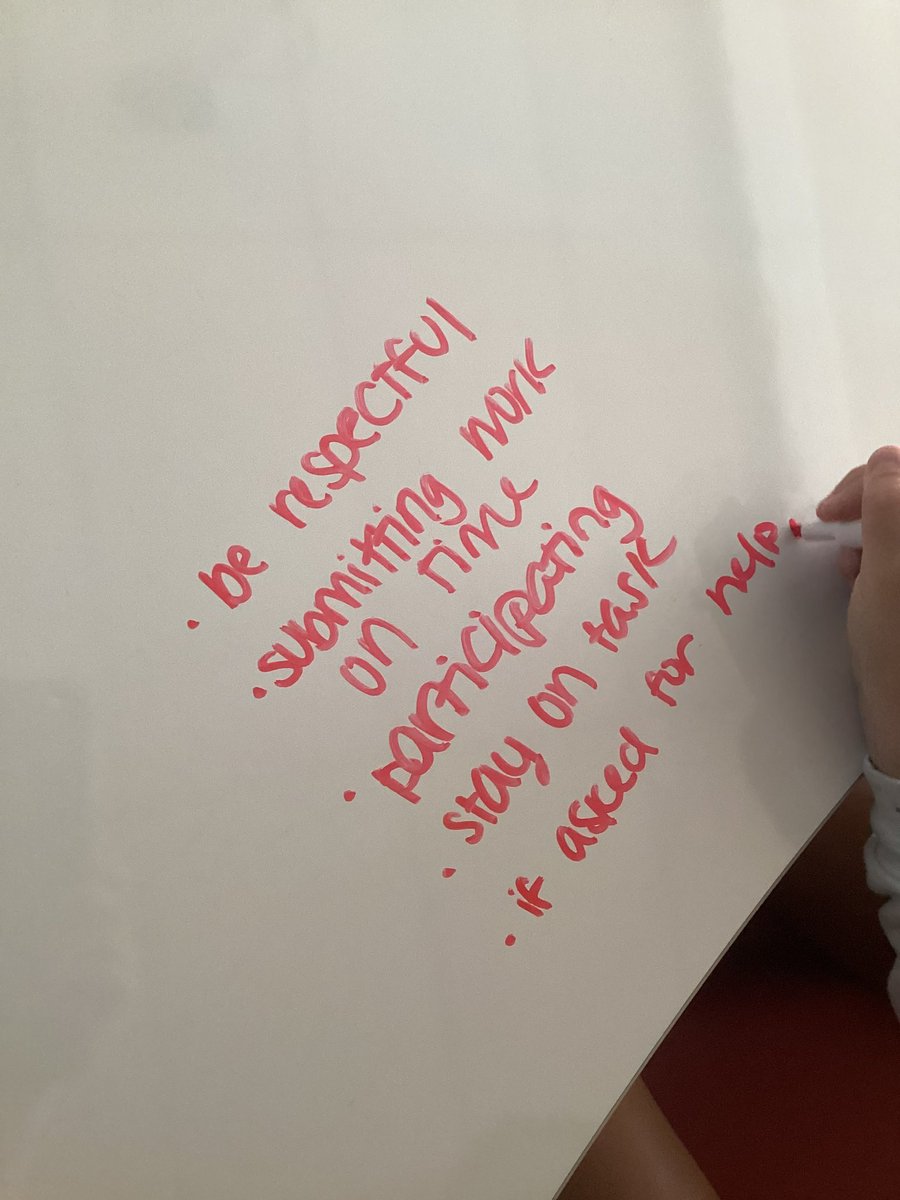 • be respectful
• submitting work
on time
• participating
• stay on task
• if asked for help